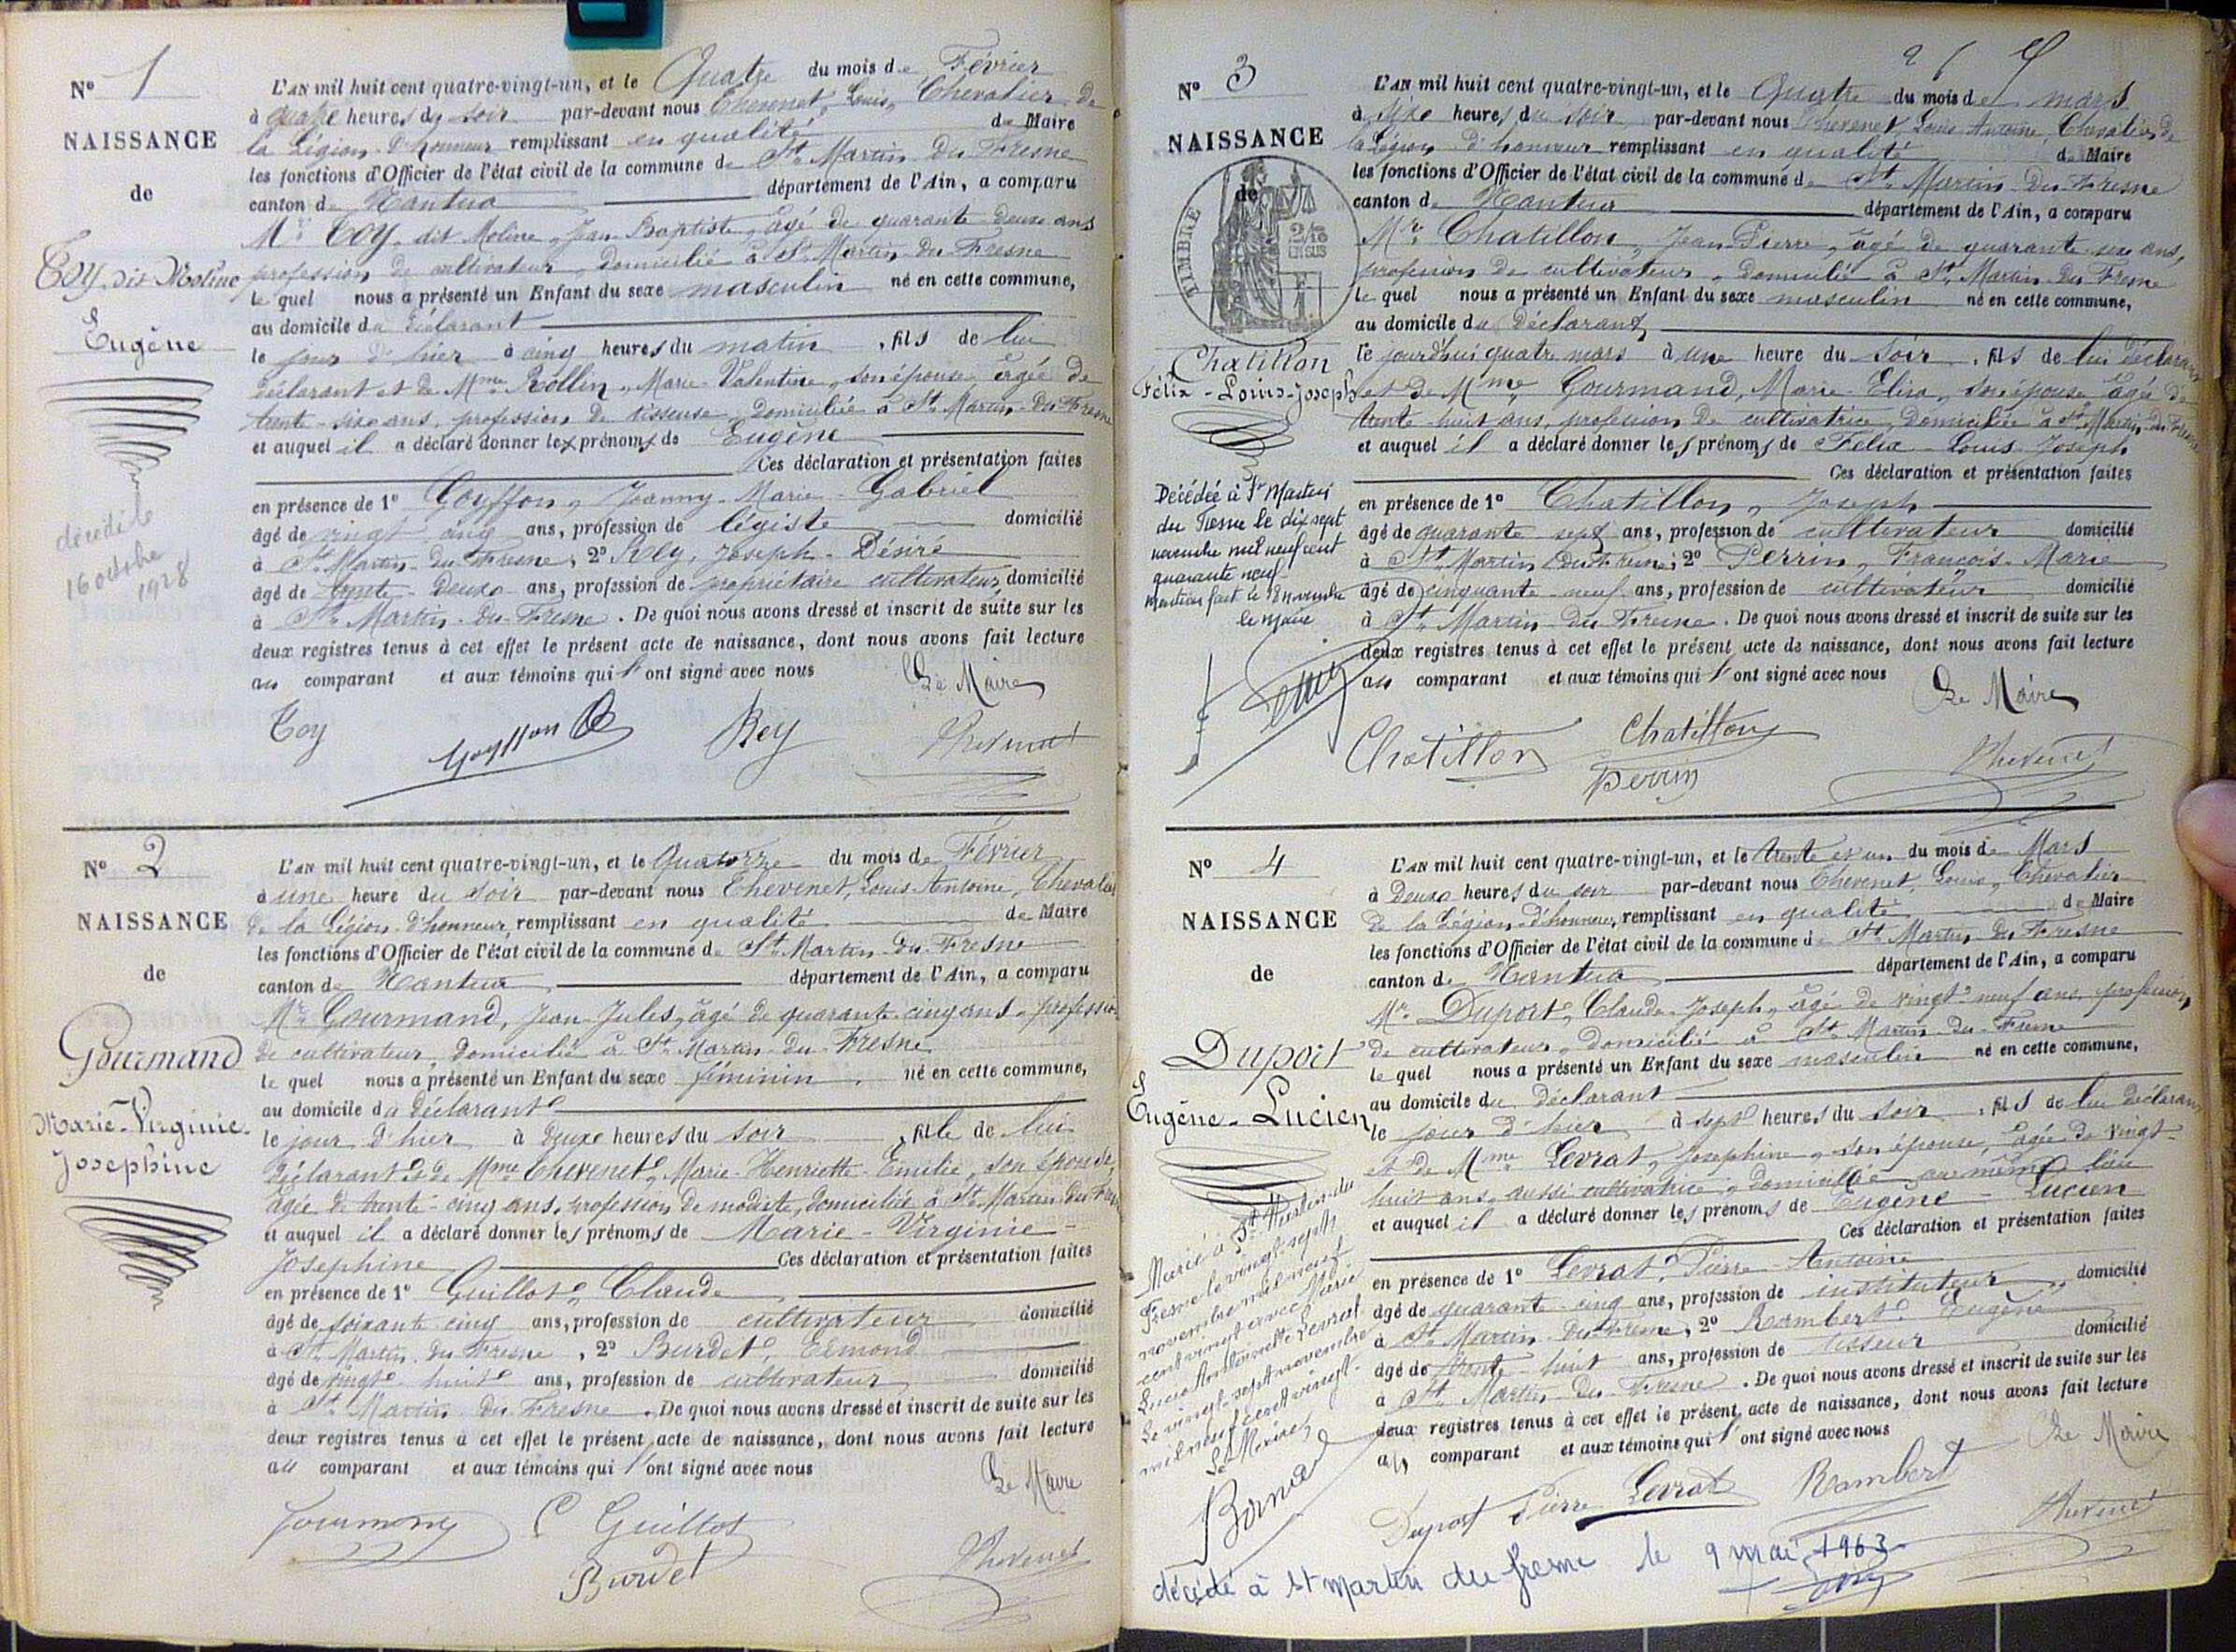 N° 1
NAISSANCE
de
Toy dit Moline
Eugène
décédé le
16 octobre
1928
L'AN mil huit cent quatre-vingt-un, et le Quatre du mois de Février
à quatre heures du soir par-devant nous Thevenet, Louis, Chevalier de
la Légion d'honneur remplissant en qualité de Maire
les fonctions d'Officier de l'état civil de la commune de St Martin du Fresne
canton de Nantua département de l'Ain, a comparu
Mr Toy dit Moline, Jean-Baptiste, âgé de quarante deux ans
profession de cultivateur, domicilié à St Martin du Fresne
lequel nous a présenté un Enfant du sexe masculin né en cette commune,
au domicile du déclarant
le jour d'hier à cinq heures du matin, fils de lui
déclarant et de Mme Rollin, Marie-Valentine, son épouse âgée de
trente-six ans, profession de tisseuse, domiciliée à St Martin-du-Fresne
et auquel il a déclaré donner les prénoms de Eugène
Ces déclaration et présentation faites
en présence de 1° Goyffon, Joanny-Marie-Gabriel
âgé de vingt cinq ans, profession de légiste domicilié
à St Martin-du-Fresne, 2° Rey, Joseph-Désiré
âgé de trente-deux ans, profession de propriétaire cultivateur, domicilié
à St Martin-du-Fresne. De quoi nous avons dressé et inscrit de suite sur les
deux registres tenus à cet effet le présent acte de naissance, dont nous avons fait lecture
au comparant et aux témoins qui l'ont signé avec nous
Le Maire
Toy Goyffon Rey Thevenet
N° 2
NAISSANCE
de
Gourmand
Marie-Virginie-
Josephine
L'AN mil huit cent quatre-vingt-un, et le Quatorze du mois de Février
à une heure du soir par-devant nous Thevenet, Louis-Antoine, Chevalier
de la Légion-d'honneur, remplissant en qualité de Maire
les fonctions d'Officier de l'état civil de la commune de St Martin-du-Fresne
canton de Nantua département de l'Ain, a comparu
Mr Gourmand, Jean-Jules, âgé de quarante-cinq ans, profession
de cultivateur, domicilié à St Martin-du-Fresne
lequel nous a présenté un Enfant du sexe féminin, né en cette commune,
au domicile du déclarant
le jour d'hier à deux heures du soir, fille de lui
déclarant et de Mme Thevenet, Marie-Henriette-Emilie, son épouse,
âgée de trente-cinq ans, profession de modiste, domiciliée à St Martin-du-Fresne
et auquel il a déclaré donner les prénoms de Marie-Virginie-
Josephine Ces déclaration et présentation faites
en présence de 1° Guillot, Claude
âgé de soixante cinq ans, profession de cultivateur domicilié
à St Martin du Fresne, 2° Burdet, Edmond
âgé de vingt-huit ans, profession de cultivateur domicilié
à St Martin du Fresne. De quoi nous avons dressé et inscrit de suite sur les
deux registres tenus à cet effet le présent acte de naissance, dont nous avons fait lecture
au comparant et aux témoins qui l'ont signé avec nous
Le Maire
Gourmand C Guillot
Burdet Thevenet
N° 3
NAISSANCE
de
TIMBRE
2/10
EN SUS
Chatillon
Félix-Louis-Joseph
Décédée à St Martin
du Fresne le dix sept
novembre mil neuf cent
quarante neuf
Mention faite le 18 novembre
le maire
L'AN mil huit cent quatre-vingt-un, et le Quatre du mois de mars
à six heures du soir par-devant nous Thevenet, Louis Antoine, Chevalier de
la Légion d'honneur remplissant en qualité de Maire
les fonctions d'Officier de l'état civil de la commune de St Martin du Fresne
canton de Nantua département de l'Ain, a comparu
Mr Chatillon, Jean Pierre, âgé de quarante-six ans,
profession de cultivateur, domicilié à St Martin du Fresne
lequel nous a présenté un Enfant du sexe masculin né en cette commune,
au domicile du Déclarant
le jourd'hui quatre mars à une heure du soir, fils de lui déclarant
et de Mme Gourmand, Marie-Elisa, son épouse âgée de
trente huit ans, profession de cultivatrice, domiciliée à St Martin-du-Fresne
et auquel il a déclaré donner les prénoms de Félix-Louis-Joseph
Ces déclaration et présentation faites
en présence de 1° Chatillon, Joseph
âgé de quarante sept ans, profession de cultivateur domicilié
à St Martin du Fresne; 2° Perrin, François-Marie
âgé de cinquante-neuf ans, profession de cultivateur domicilié
à St Martin-du-Fresne. De quoi nous avons dressé et inscrit de suite sur les
deux registres tenus à cet effet le présent acte de naissance, dont nous avons fait lecture
au comparant et aux témoins qui l'ont signé avec nous
Le Maire
Chatillon Chatillon
Perrin Thevenet
N° 4
NAISSANCE
de
Duport
Eugène-Lucien
Marié à St Martin du
Fresne le vingt-sept
novembre mil neuf
cent vingt avec Marie
Lucie Antoinette Levrat
Le vingt-sept novembre
mil neuf cent vingt.
Le Maire,
L'AN mil huit cent quatre-vingt-un, et le trente et un du mois de Mars
à Deux heures du soir par-devant nous Thevenet, Louis, Chevalier
de la Légion-d'honneur, remplissant en qualité de Maire
les fonctions d'Officier de l'état civil de la commune de St Martin-du-Fresne
canton de Nantua département de l'Ain, a comparu
Mr Duport, Claude-Joseph, âgé de vingt-neuf ans, profession
de cultivateur, domicilié à St Martin-du-Fresne
lequel nous a présenté un Enfant du sexe masculin né en cette commune,
au domicile du Déclarant
le jour d'hier à sept heures du soir, fils de lui déclarant
et de Mme Levrat, Josephine, son épouse, âgée de vingt-
huit ans, aussi cultivatrice, domiciliée au même lieu
et auquel il a déclaré donner les prénoms de Eugène-Lucien
Ces déclaration et présentation faites
en présence de 1° Levrat, Pierre-Antoine
âgé de quarante-cinq ans, profession de instituteur, domicilié
à St Martin du Fresne, 2° Rambert, Eugène
âgé de trente-huit ans, profession de tisseur domicilié
à St Martin-du-Fresne. De quoi nous avons dressé et inscrit de suite sur les
deux registres tenus à cet effet le présent acte de naissance, dont nous avons fait lecture
au comparant et aux témoins qui l'ont signé avec nous
Le Maire
Duport Pierre Levrat Rambert Thevenet
décédé à St martin du fresne le 9 mai 1963